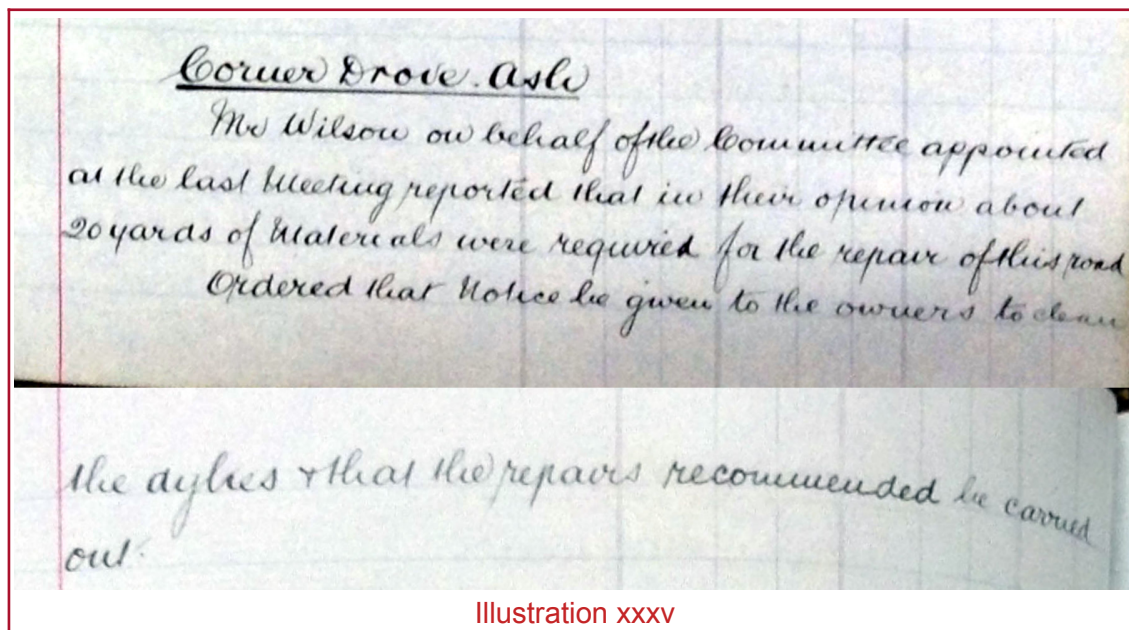 Corner Drove. Ash
Mr Wilson on behalf of the Committee appointed
at the last Meeting reported that in their opinion about
20 yards of Materials were required for the repair of this road
Ordered that Notice be given to the owners to clean
the dykes & that the repairs recommended be carried
out.
Illustration xxxv